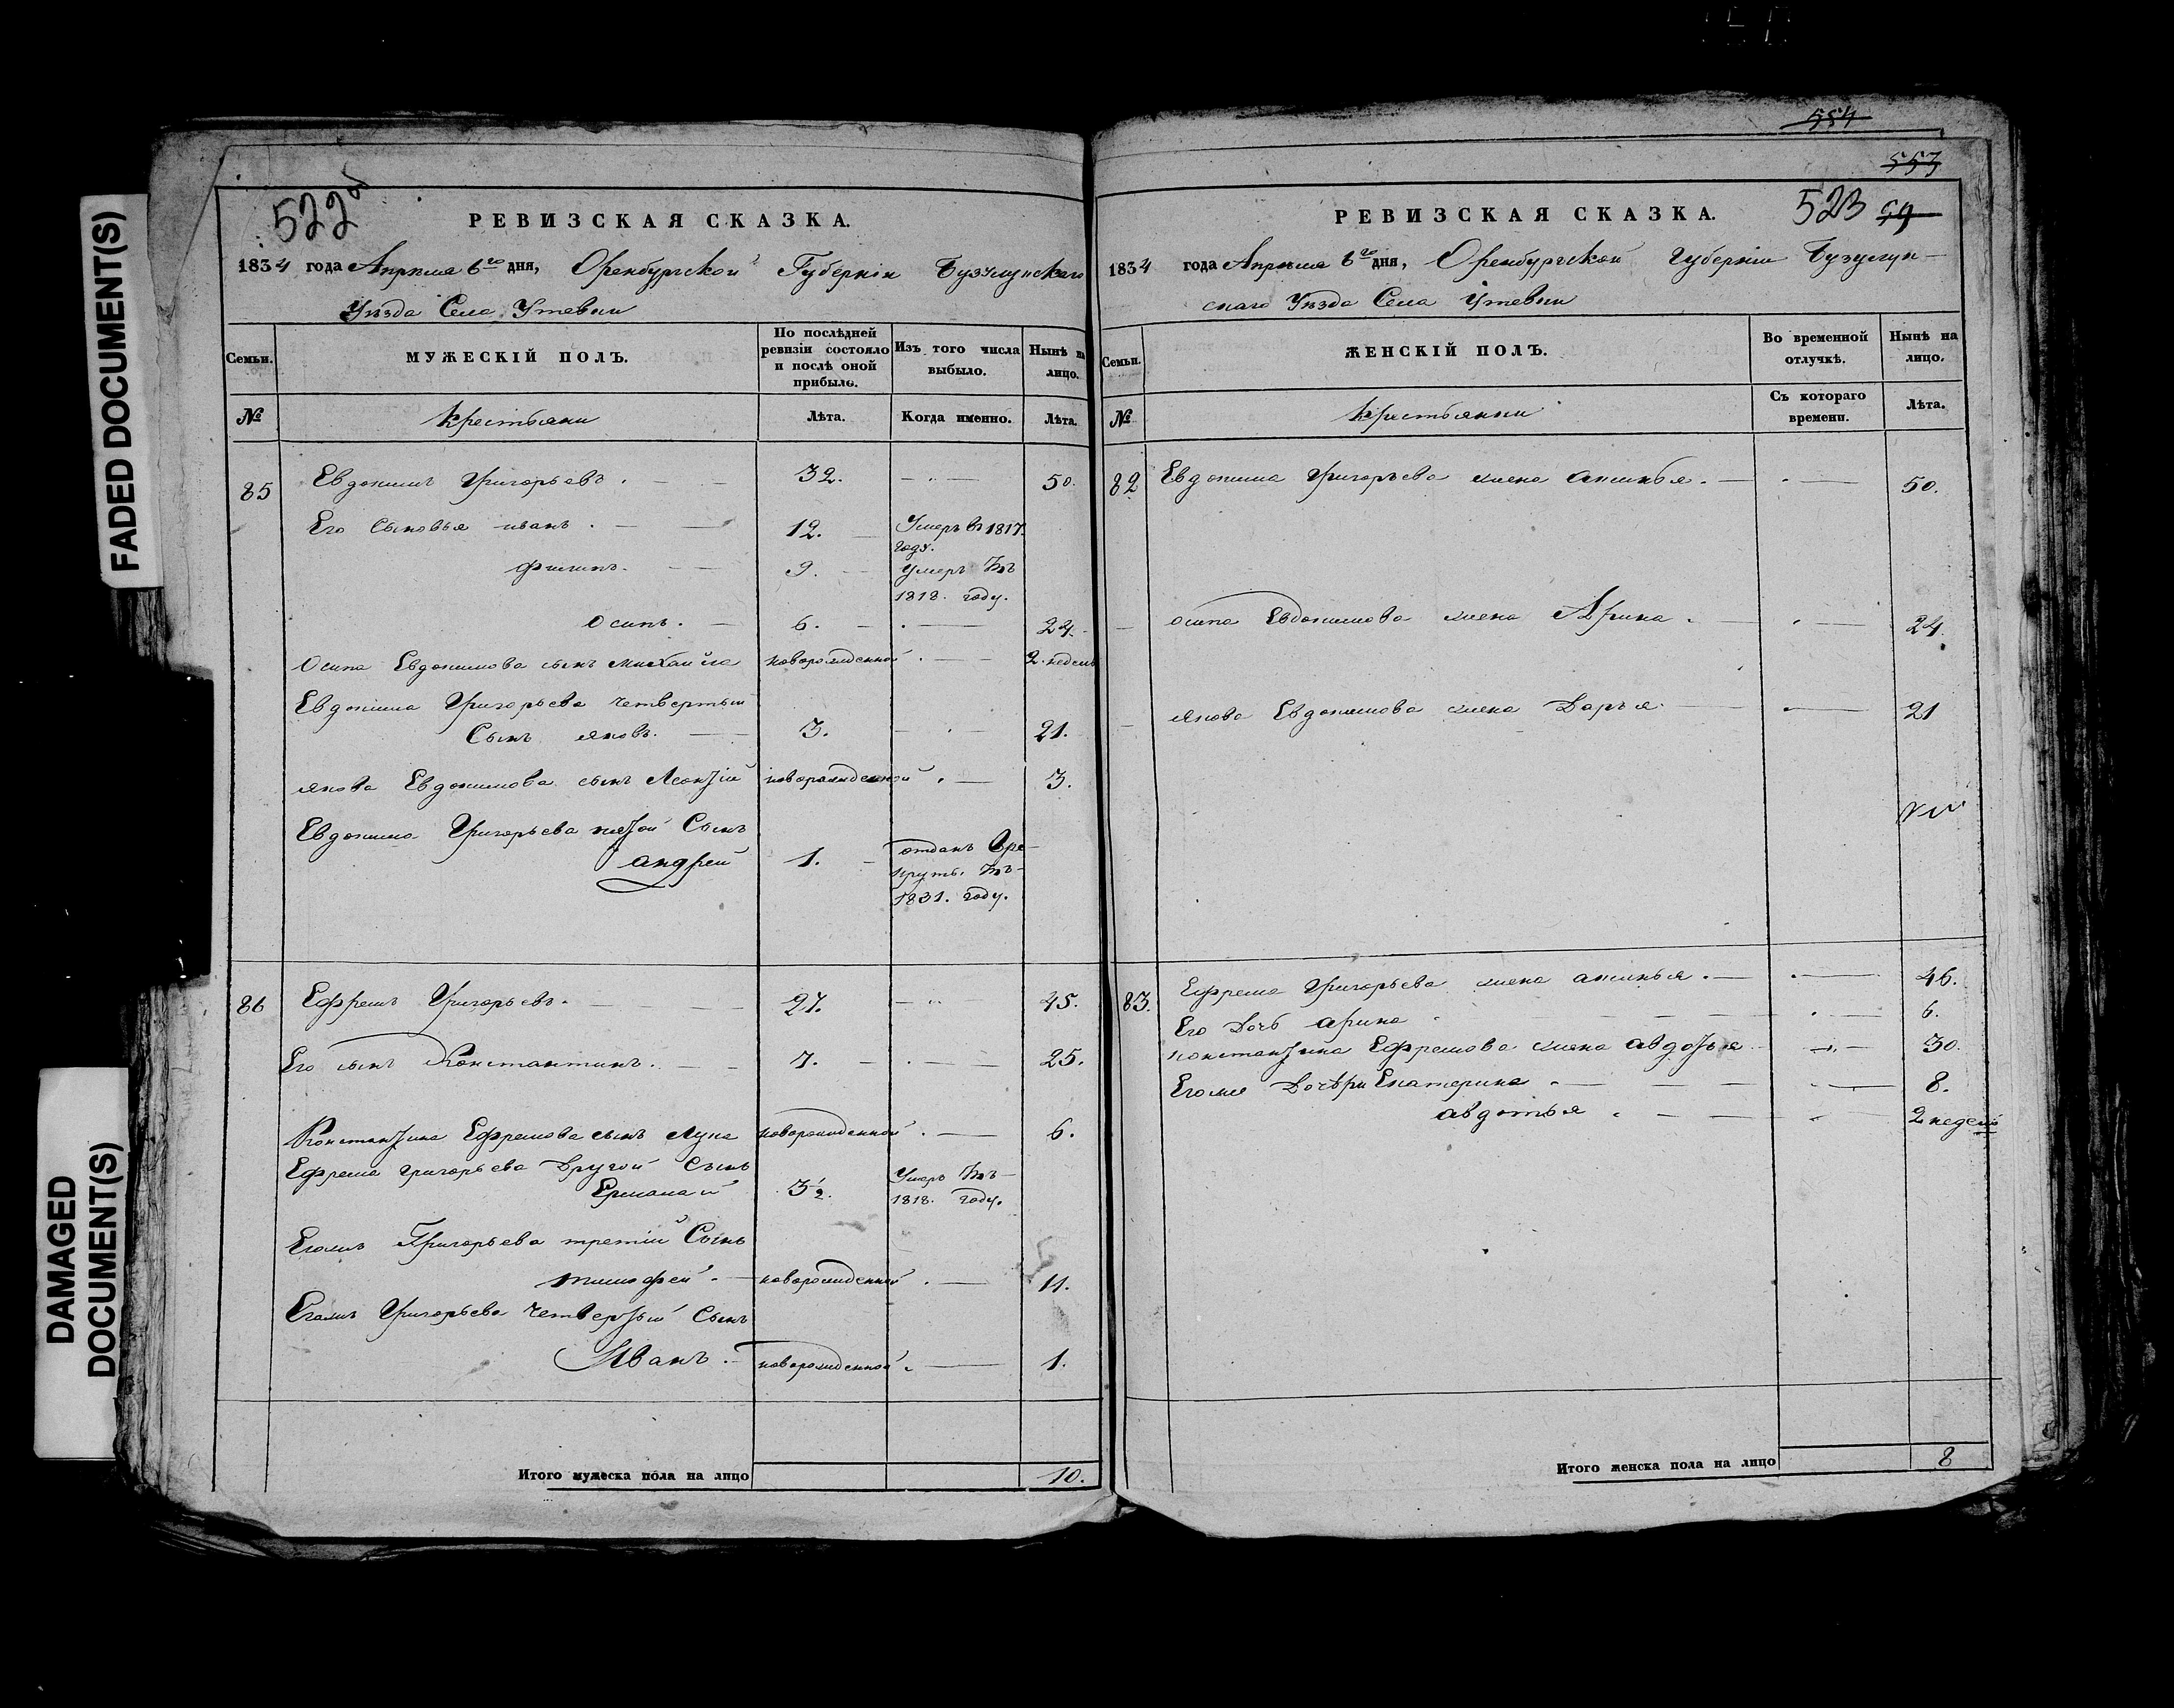 FADED DOCUMENT(S)
DAMAGED
DOCUMENT(S)
522 об
РЕВИЗСКАЯ СКАЗКА.
1834 года Апреля 6го дня, Оренбургской Губернiи Бузулуцкаго
Уезда Села Утевки
Семьи.
МУЖЕСКІЙ ПОЛЪ.
По послѣдней ревизіи состояло и послѣ оной прибыло.
Изъ того числа выбыло.
Нынѣ на лицо.
№
Крестьяни
Лѣта.
Когда именно.
Лѣта.
85 Евдокимъ Григорьевъ. 32. 50.
Его Сыновья иванъ. 12. Умеръ въ 1817. году.
Филипъ. 9. умеръ въ 1818. году.
Осипъ. 6. 24.
Осипа Евдокимова сынъ михайла новорожденной 2. недель
Евдокима Григорьева четвертый
Сынъ яковъ. 3. 21.
якова Евдокимова сынъ Леонтiй новорожденной 3.
Евдокима Григорьева пятой Сынъ
андрей 1. отданъ Вре-
круты. въ
1831. году.
86 Ефремъ Григорьевъ. 27. 45.
Его сынъ Константинъ. 7. 25.
Константина Ефремова сынъ Лука новорожденной 6.
Ефрема григорьева Другой Сынъ
Ермалай 3½. Умеръ въ
1818. году.
Егожъ Григорьева третiй Сынъ
тимофей. новорожденной 11.
Егожъ Григорьева Четвертый Сынъ
Иванъ. новорожденной 1.
Итого мужеска пола на лицо 10.
554
553
523 59
РЕВИЗСКАЯ СКАЗКА.
1834 года Апреля 6го дня, Оренбургской Губернiи Бузулуц-
скаго Уезда Села Утевки
Семьи.
ЖЕНСКІЙ ПОЛЪ.
Во временной отлучкѣ.
Нынѣ на лицо.
№
Крестьянки
Съ котораго времени.
Лѣта.
82 Евдокима Григорьева жена аксинья. 50.
осипа Евдокимова жена Арина. 24.
якова Евдокимова жена Дарья. 21
83. Ефрема Григорьева жена аксинья. 46.
Его Дочь арина 6.
константина Ефремова жена авдотья 30.
Егоже Дочери Екатерина 8.
авдотья. 2 недель
Итого женска пола на лицо 8